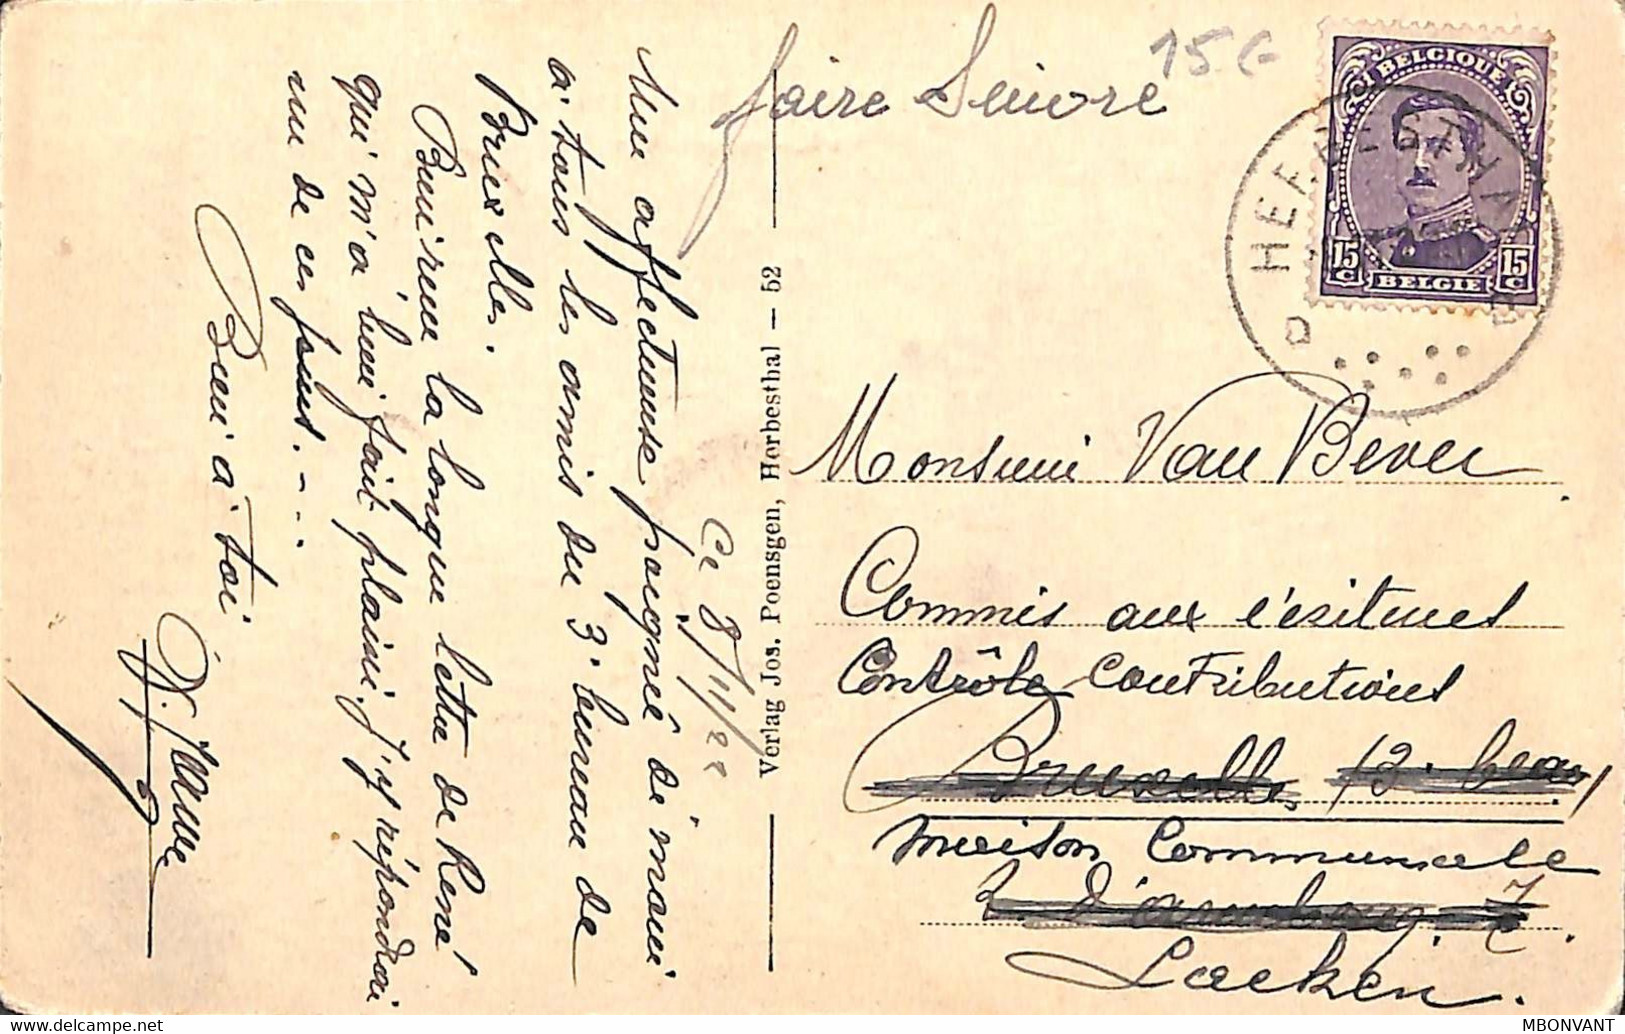 faire suivre
15 €
BELGIQUE
15 C
15 C
BELGIE
HERBESTHAL
Une affectueuse poignée de main
à tous les amis du 3e bureau de
Bruxelles.
Bien reçu la longue lettre de René
qui m'a bien fait plaisir. J'y répondrai
un de ces jours. ---
Bien à toi.
Ce 8/11/22
Verlag Jos. Poensgen, Herbesthal — 52
Monsieur Van Bever
Commis aux écritures
Contrôle Contributions
Bruxelles
Maison Communale
Laeken.
MBONVANT